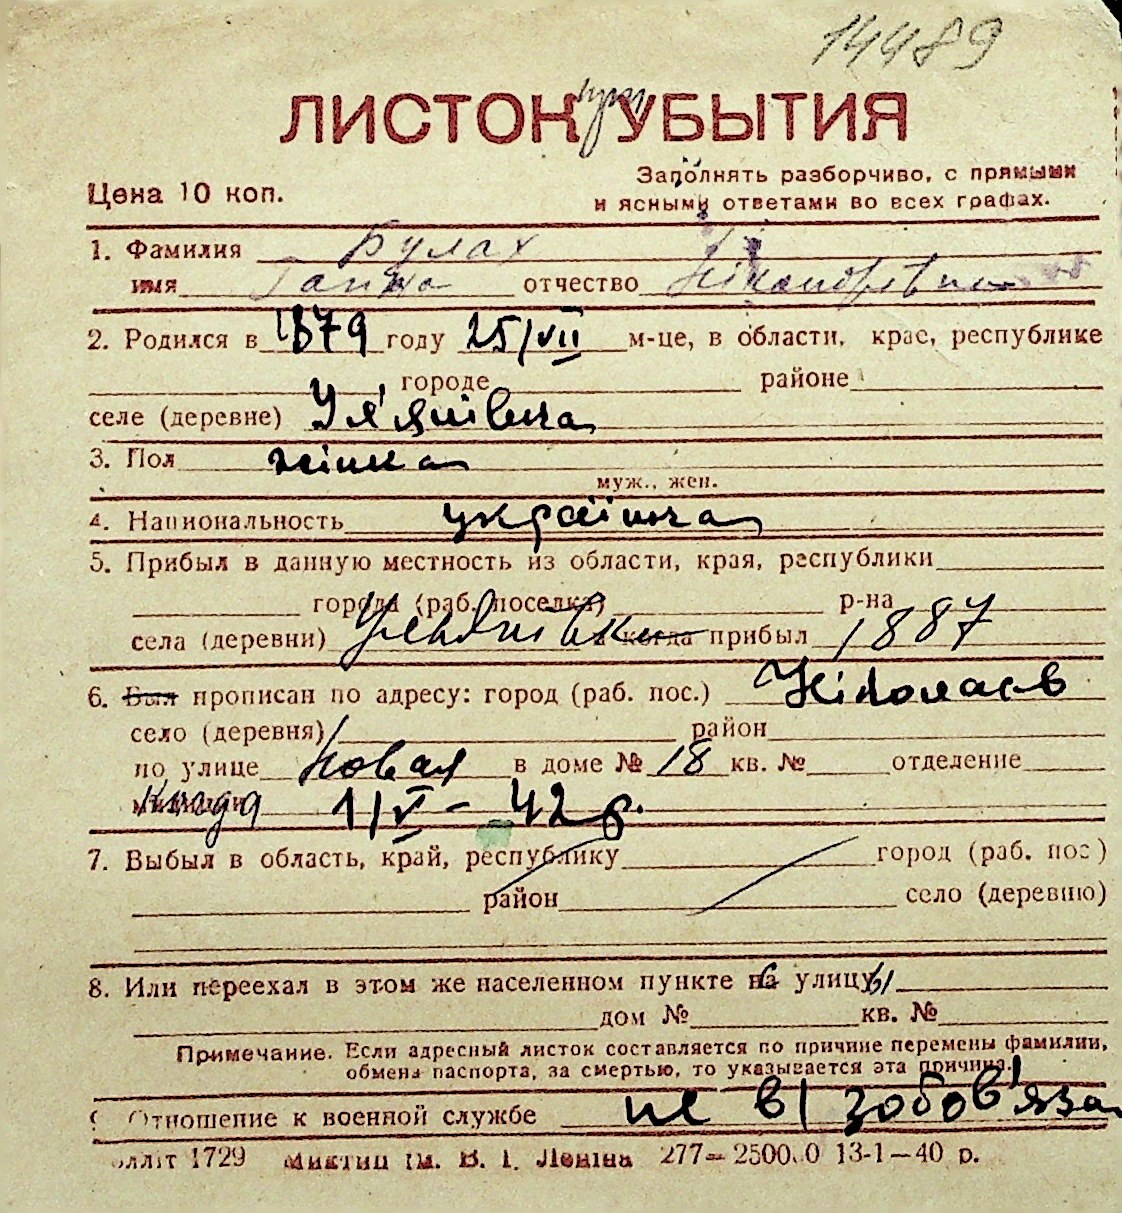 14489
ЛИСТОК УБЫТИЯ
Цена 10 коп.
Заполнять разборчиво, с прямыми
и ясными ответами во всех графах.
1. Фамилия Булах
имя Ганна отчество Ніканорівна
2. Родился в 1879 году 25/VII м-це, в области, крае, республике
городе районе
селе (деревне) Ул'янівка
3. Пол жінка
муж., жен.
4. Национальность українка
5. Прибыл в данную местность из области, края, республики
города (раб. поселка) р-на
села (деревни) когда прибыл 1887
6. Был прописан по адресу: город (раб. пос.) Ніколаєв
село (деревня) район
по улице Новая в доме № 18 кв. № отделение
милиции Когда 1/V - 42 р.
7. Выбыл в область, край, республику город (раб. пос)
район село (деревню)
8. Или переехал в этом же населенном пункте на улицу
дом № кв. №
Примечание. Если адресный листок составляется по причине перемены фамилии,
обмена паспорта, за смертью, то указывается эта причина.
Отношение к военной службе не в/зобов'яза
1729 ім. В. І. Леніна 277— 13-1—40 р.